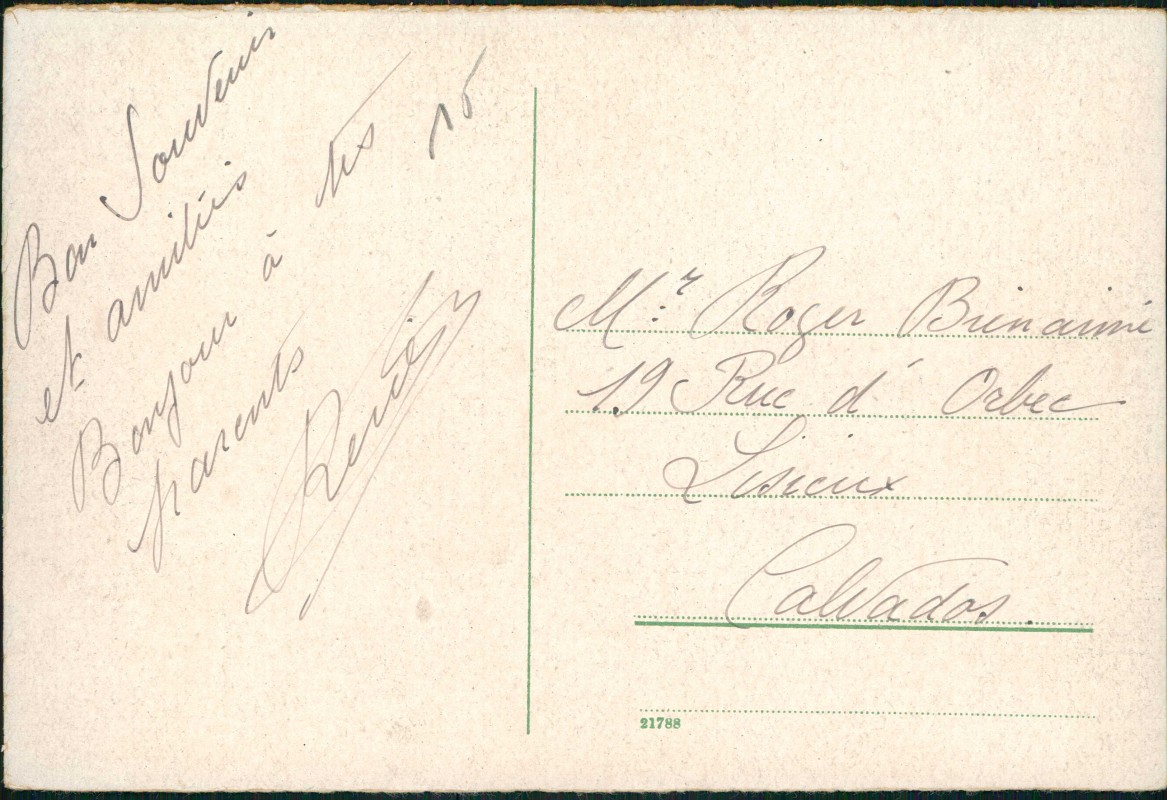 Bon Souvenir
et amitiés
Bonjour à tes 15
parents
Mr. Roger Bienaimé
19 Rue d' Orbec
Lisieux
Calvados.
21788